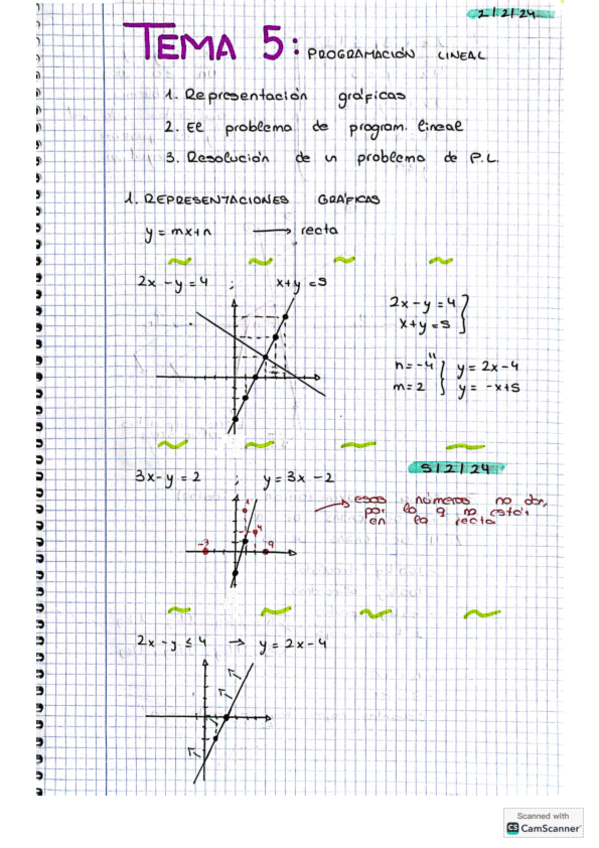 2/2/24
TEMA 5: PROGRAMACIÓN LINEAL
1. Representación gráficas
2. El problema de program. lineal
3. Resolución de un problema de P.L.
1. REPRESENTACIONES GRÁFICAS
y = mx+n → recta
2x - y = 4 ; x+y = 5
2x - y = 4
x+y = 5
n = -4 y = 2x-4
m = 2 y = -x+5
5/2/24
3x - y = 2 ; y = 3x - 2
esos números no dan,
por lo q no están
en la recta
-3
4
9
2x - y ≤ 4 → y = 2x - 4
Scanned with
CS CamScanner